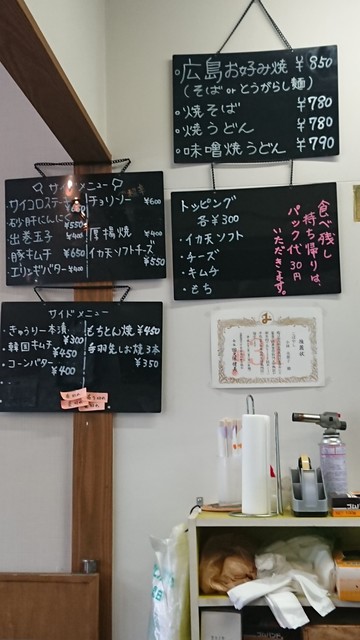 ・広島お好み焼 ¥850
(そば or とうがらし麺)
・焼そば ¥780
・焼うどん ¥780
・味噌焼うどん ¥790
トッピング
各¥300
・イカ天ソフト
・チーズ
・キムチ
・もち
食べ残し
持ち帰りは、
パック代30円
いただきます。
サイドメニュー
・サイコロステーキ
・砂肝にんにく
・出巻玉子 ¥400
・豚キムチ ¥650
・エリンギバター ¥400
チョリソー ¥600
厚揚焼 ¥400
イカ天ソフトチーズ ¥550
サイドメニュー
・きゅうり一本漬 ¥300
・韓国キムチ ¥450
・コーンバター ¥400
もちとん焼 ¥450
手羽先しお焼3本 ¥350